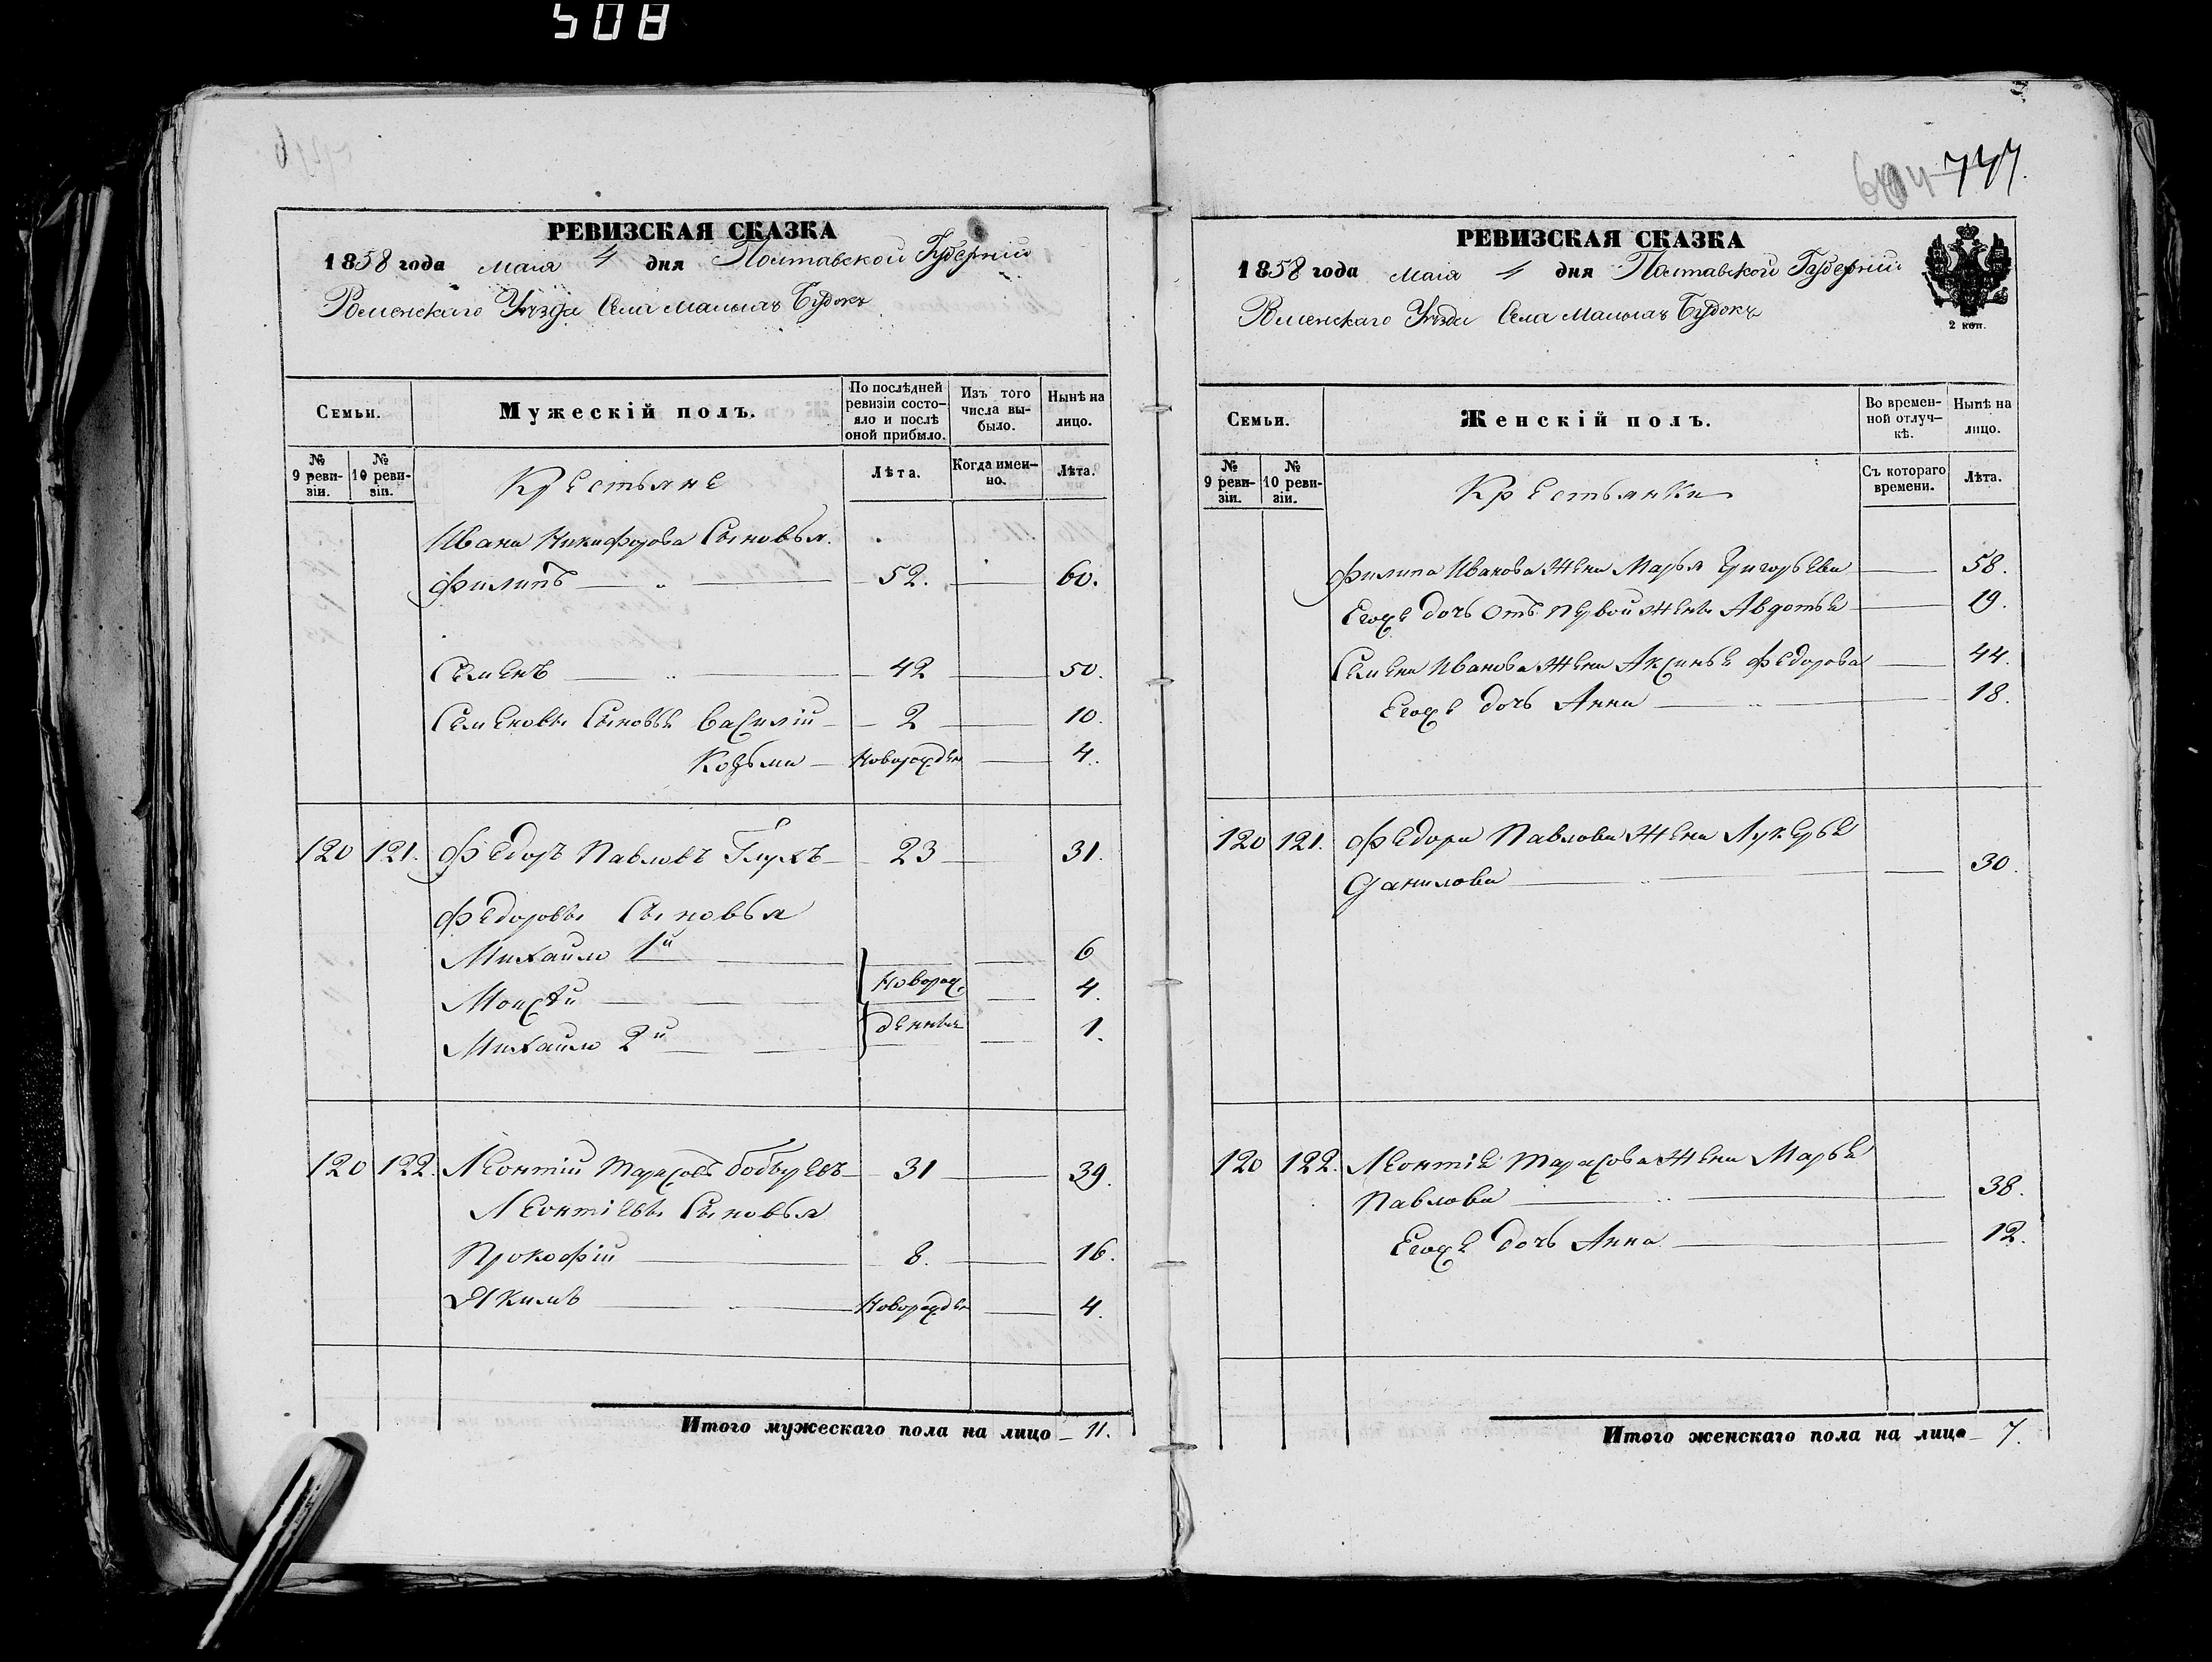 508
747.
РЕВИЗСКАЯ СКАЗКА
1858 года маія 4 дня Полтавской Губерніи
Роменскаго Уѣзда Села Малыхъ Будокъ
Семьи.
Мужескій полъ.
По послѣдней ревизіи состояло и послѣ оной прибыло.
Изъ того числа выбыло.
Нынѣ на лицо.
№ 9 ревизіи.
№ 10 ревизіи.
Крестьяне
Лѣта.
Когда именно.
Лѣта.
Ивана Никифорова Сыновья.
Филипъ 52. 60.
Семенъ 42 50.
Семеновы Сыновья Василій 2 10.
Козьма Новорожден 4.
120 121. Федоръ Павловъ Глухъ 23 31.
Федоровы Сыновья
Михайло 1й 6
Моисей Новорож 4.
Михайло 2й денные 1.
120 122. Леонтій Тарасовъ 31 39.
Леонтіевы Сыновья
Прокофій 8. 16.
Якимъ Новорожден 4.
Итого мужескаго пола на лицо 11.
РЕВИЗСКАЯ СКАЗКА
1858 года маія 4 дня Полтавской Губерніи
Роменскаго Уѣзда Села Малыхъ Будокъ
2 коп.
Семьи.
Женскій полъ.
Во временной отлучкѣ.
Нынѣ на лицо.
№ 9 ревизіи.
№ 10 ревизіи.
Крестьянки
Съ котораго времени.
Лѣта.
Филипа Иванова Жена Марья Григорьева 58.
Егоже дочь отъ первой Жены Авдотья 19.
Семена Иванова Жена Аксинья Федорова 44.
Егоже дочь Анна 18.
120 121. Федора Павлова Жена Лукерья
Данилова 30.
120 122. Леонтія Тарасова Жена Марья
Павлова 38.
Егоже дочь Анна 12.
Итого женскаго пола на лицо 7.